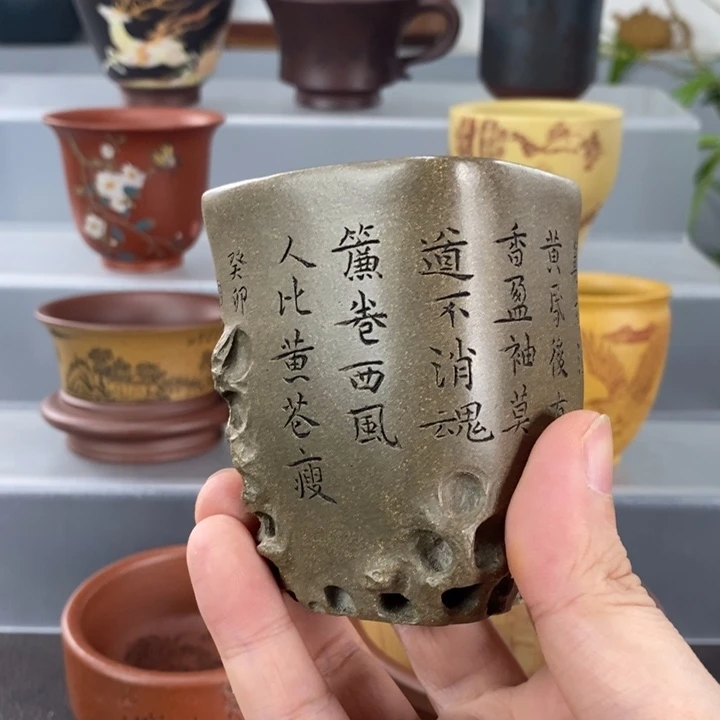 黄昏後
香盈袖莫
道不消魂
簾卷西風
人比黄花瘦
癸卯